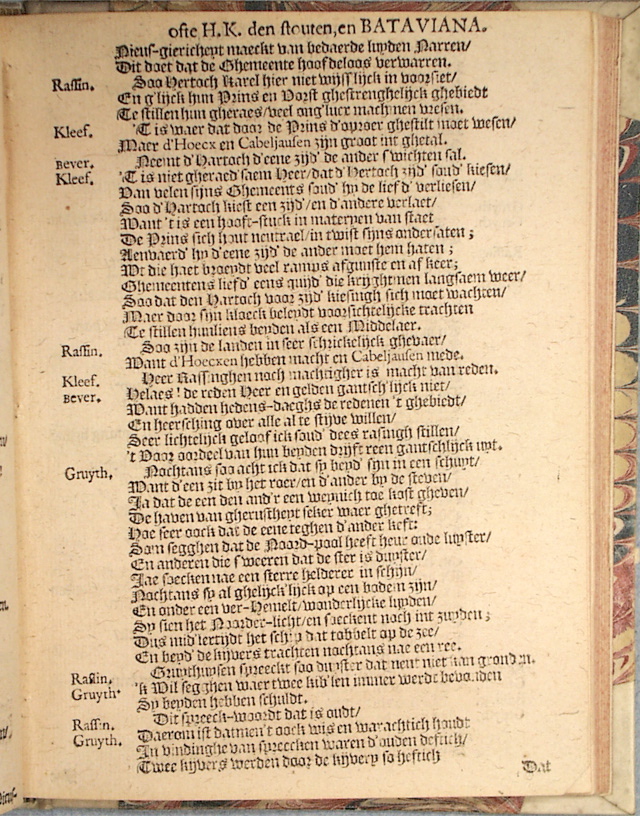 ofte H.K. den stouten, en BATAVIANA.
Nieus-giericheyt maeckt van bedaerde luyden Narren/
Dit doet dat de Ghemeente hoofdeloos verwarren.
Rassin. Soo Hertoch Karel hier niet wijsslijck in voorsiet/
En g'lijck hun Prins en Vorst ghestrenghelijck ghebiedt
Te stillen hun gheraes/veel ongluck machmen vresen.
Kleef. 'T is waer dat door de Prins d'oproer ghestilt moet wesen/
Maer d'Hoecx en Cabeljausen zijn groot int ghetal.
Bever. Neemt d'Hartoch d'eene zijd' de ander s'wichten sal.
Kleef. 'T is niet gheraed'saem Heer/dat d'Hertoch zijd' soud' kiesen/
Van velen sijns Ghemeents soud' hy de lief d' verliesen/
Soo d'Hartoch kiest een zijd'/en d'andere verlaet/
Want 't is een hooft-stuck in materyen van staet
De Prins sich hout neutrael/in twist sijns ondersaten;
Aenvaerd' hy d'eene zijd' de ander moet hem haten;
Wt die haet vroeydt veel ramps afgunste en af keer;
Ghemeentens lief d' eens quijd' die kryghtmen langsaem weer/
Soo dat den Hartoch voor zijd' kiesingh sich moet wachten/
Maer door sijn kloeck beleydt voorsichtelijcke trachten
Te stillen hunliens beyden als een Middelaer.
Rassin. Soo zijn de landen in seer schrickelijck ghevaer/
Want d'Hoecxen hebben macht en Cabeljausen mede.
Kleef. Heer Rassinghen noch machtigher is macht van reden.
Bever. Helaes! de reden Heer en gelden gantsch'lijck niet/
Want hadden hedens-daeghs de redenen 't ghebiedt/
En heersching over alle al te stijve willen/
Seer lichtelijck geloof ick soud' dees rasingh stillen/
't Voor oordeel van hun beyden drijft reen gantschlijck uyt.
Gruyth. Nochtans soo acht ick dat sy beyd' sijn in een schuyt/
Want d'een zit by het roer/en d'ander by de steven/
Ja dat de een den and'r een weynich toe kost gheven/
De haven van gherustheyt seker waer ghetreft;
Hoe seer oock dat de eene teghen d'ander keft:
Som segghen dat de Noord-pool heeft heur oude luyster/
En anderen die s'weeren dat de ster is duyster/
Jae soecken nae een sterre helderer in schijn/
Nochtans sy al ghelijck'lijck op een bodem zijn/
En onder een ver-Hemelt/wonderlijcke luyden/
Sy sien het Noorder-licht/en soeckent noch int zuyden;
Dus mid'lertijdt het schip dat tobbelt op de zee/
En beyd' de kijvers trachten nochtans nae een ree.
Rassin. Gruythuysen spreeckt soo duyster dat ment niet kan gronden.
Gruyth. 'k Wil segghen waer twee kib'len immer werdt bevonden
Sy beyden hebben schuldt.
Rassin. Dit spreeck-woordt dat is oudt/
Gruyth. Daerom ist datmen't oock wis en warachtich houdt
In vindinghe van spreecken waren d'ouden deftich/
Twee kijvers werden door de kijvery so heftich
Dat